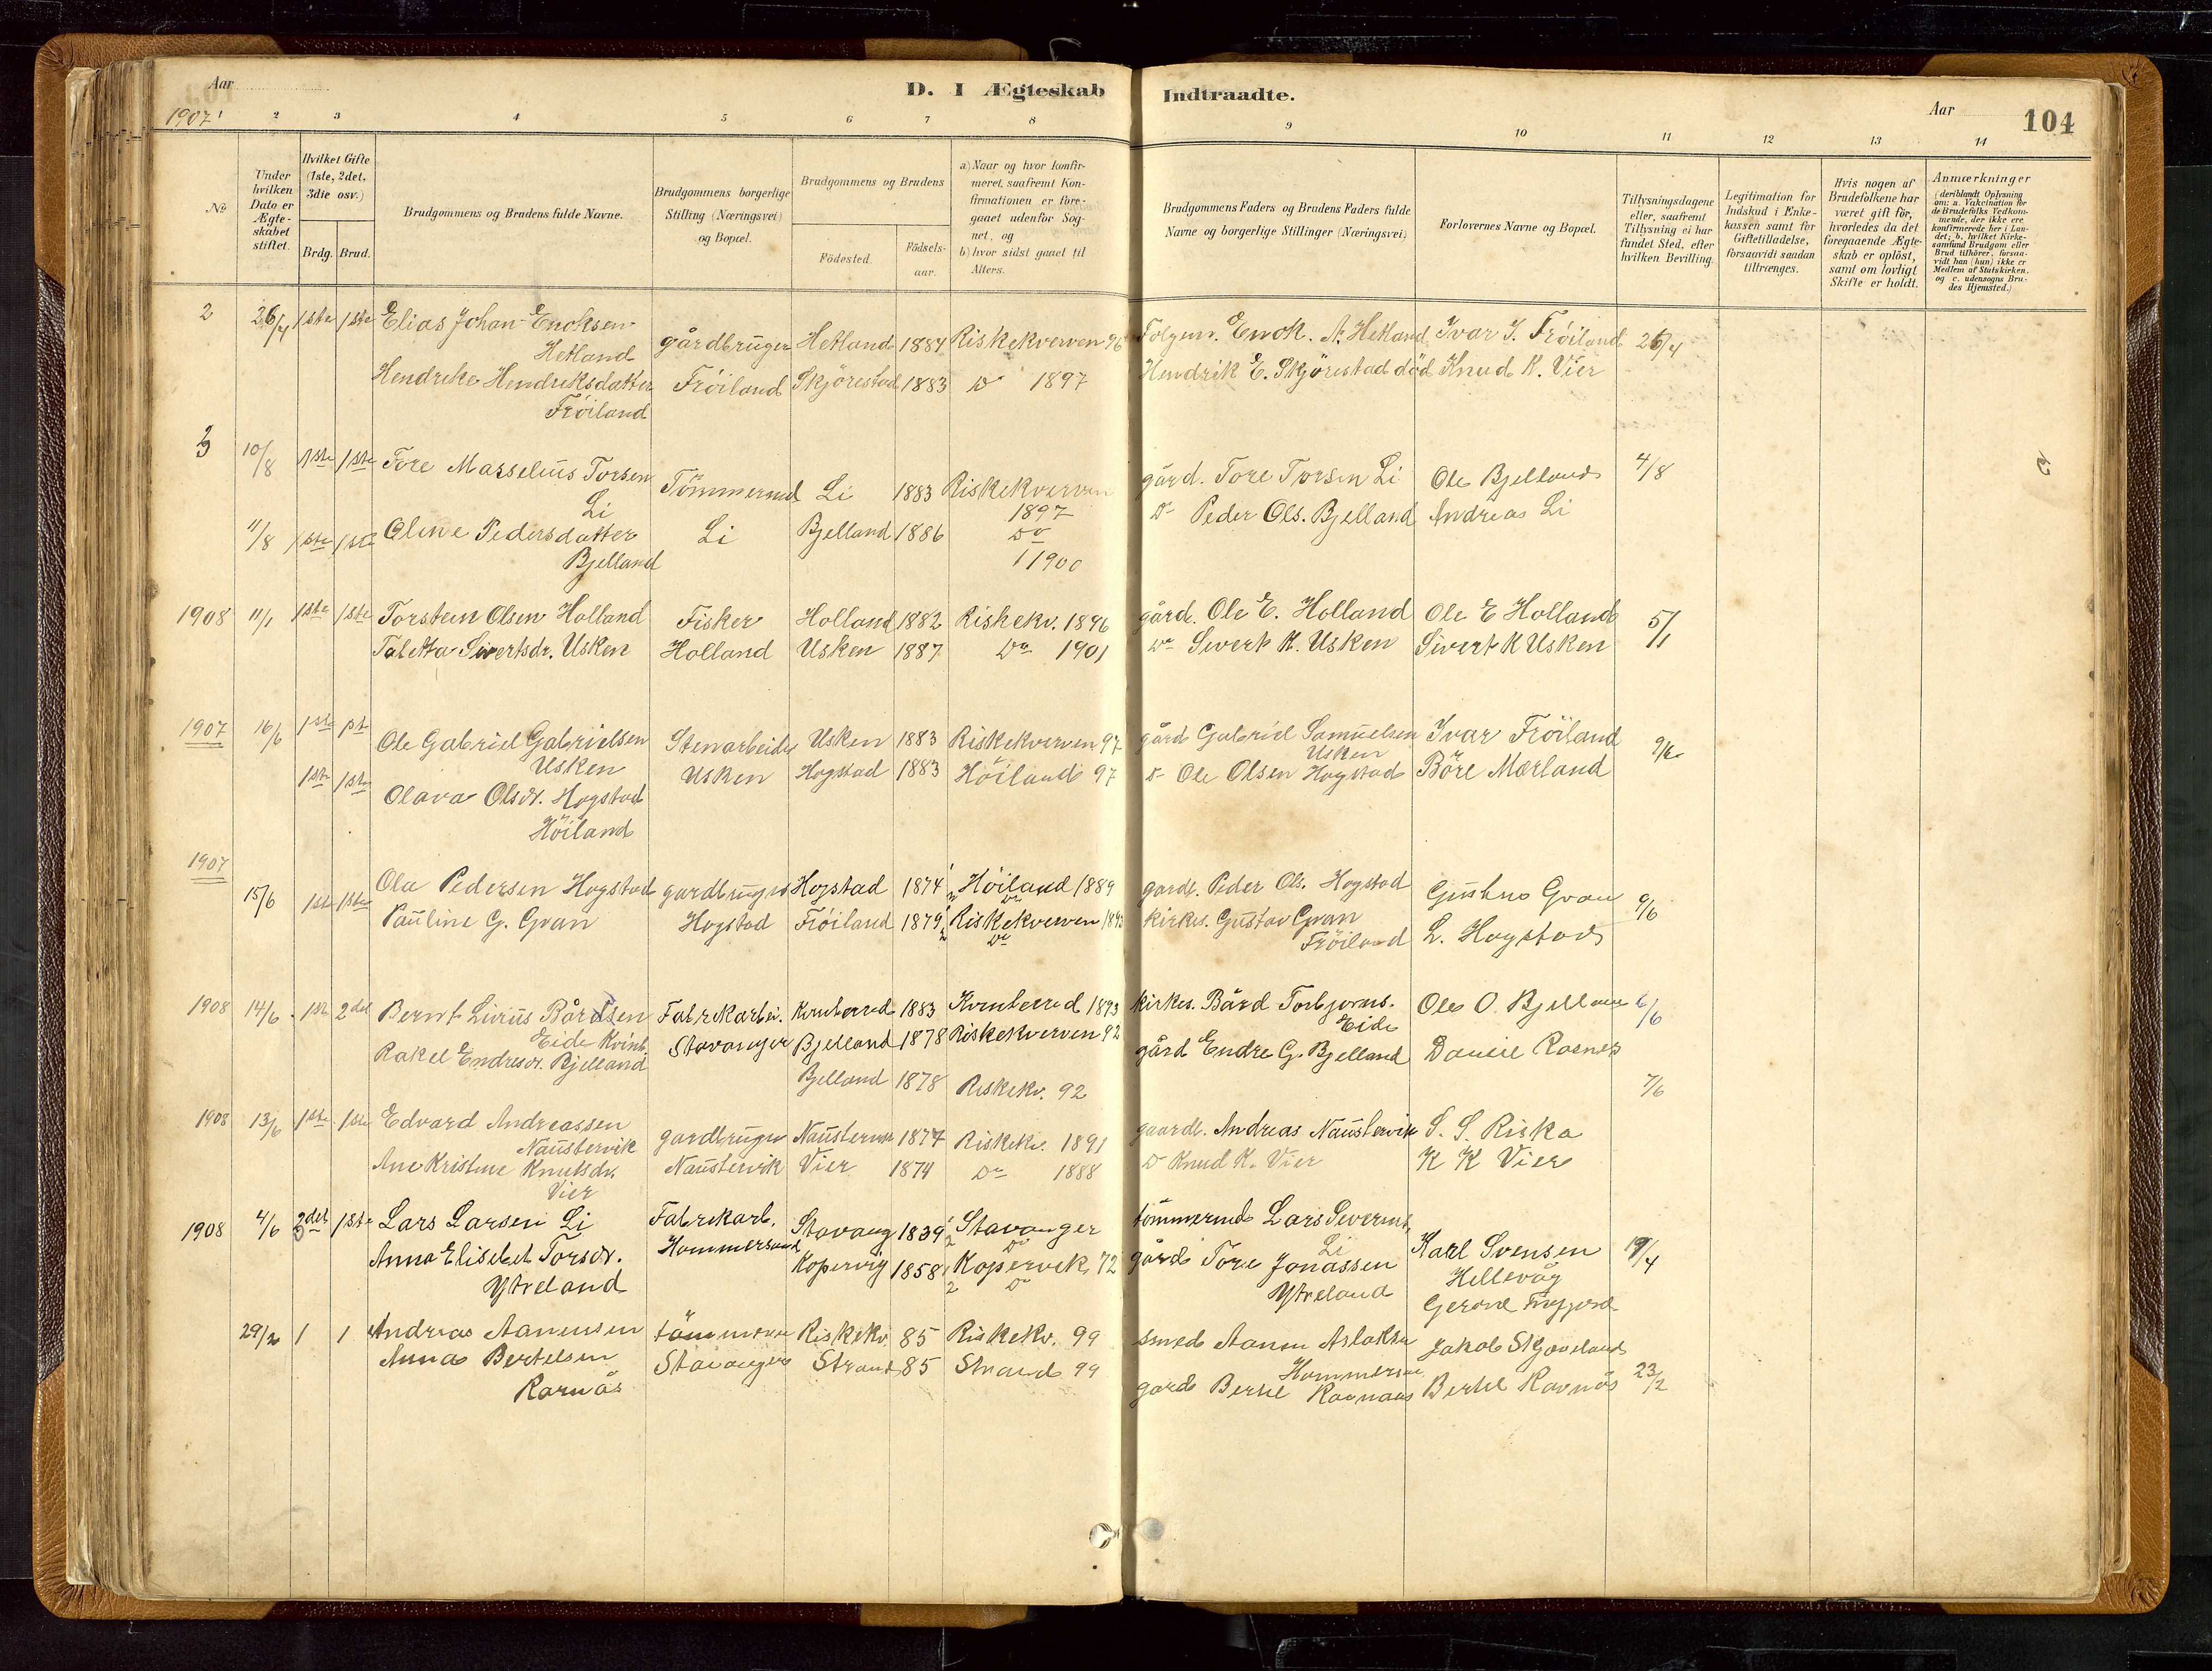 Aar
1907
D. I Ægteskab Indtraadte.
Aar
104
1 2 3 4 5 6 7 8 9 10 11 12 13 14
No
Under hvilken Dato er Ægteskabet stiftet.
Hvilket Gifte (1ste, 2det, 3die osv.)
Brdg. Brud.
Brudgommens og Brudens fulde Navne.
Brudgommens borgerlige Stilling (Næringsvei) og Bopæl.
Brudgommens og Brudens
Födested.
Födselsaar.
a) Naar og hvor konfirmeret, saafremt Konfirmationen er foregaaet udenfor Sognet, og
b) hvor sidst gaaet til Alters.
Brudgommens Faders og Brudens Faders fulde Navne og borgerlige Stillinger (Næringsvei)
Forlovernes Navne og Bopæl.
Tillysningsdagene eller, saafremt Tillysning ei har fundet Sted, efter hvilken Bevilling.
Legitimation for Indskud i Enkekassen samt for Giftetilladelse, forsaavidt saadan tiltrænges.
Hvis nogen af Brudefolkene har været gift för, hvorledes da det foregaaende Ægteskab er oplöst, samt om lovligt Skifte er holdt.
Anmærkninger
(deriblandt Oplysning om: a. Vakcination for de Brudefolks Vedkommende, der ikke ere konfirmerede her i Landet; b. hvilket Kirkesamfund Brudgom eller Brud tilhörer, forsaavidt han (hun) ikke er Medlem af Statskirken, og c. udensogns Brudes Hjemsted.)
2 26/4 1ste 1ste Elias Johan Enoksen
Hetland
gårdbruger Hetland 1884 Riskekverven 96
Enok. A. Hetland Ivar I. Fröiland 26/4
Hendrike Hendriksdatter
Fröiland
Fröiland Skjörestad 1883 do 1897
Hendrik E. Skjörestad död Knud K. Vier
3 10/8 1ste 1ste Tore Masselius Torsen
Li
Tömmermd Li 1883 Riskekverven
1897
gård. Tore Torsen Li Ole Bjelland 4/8
11/8 1ste 1ste Oline Pedersdatter
Bjelland
Li Bjelland 1886 do
1900
do Peder Ols. Bjelland Andreas Li
1908 11/1 1ste 1ste Torstein Olsen Holland Fisker Holland 1882 Riskekv. 1896
gård. Ole E. Holland Ole E Holland 5/1
Taletta Sivertsdr. Usken Holland Usken 1887 Do 1901
do Sivert K. Usken Sivert K Usken
1907 16/6 1ste 1st Ole Gabriel Gabrielsen
Usken
Stenarbeider Usken 1883 Riskekverven 97
gård Gabriel Samuelsen
Usken
Ivar Fröiland 9/6
1ste 1ste Olava Olsdr. Hogstad
Höiland
Usken Hogstad 1883 Höiland 97
do Ole Olsen Hogstad Böre Mærland
1907
15/6 1ste 1ste Ola Pedersen Hogstad gardbruger Hogstad 1874 1 Höiland 1889
2 Do
gardb. Peder Ols. Hogstad Gustav Gran 9/6
Pauline G. Gran Hogstad Fröiland 1879 1 Riskekverven 1893
2 Do
kirkes. Gustav Gran
Fröiland
L. Hogstad
1908 14/6 1ste 2det Bernt Sirius Bårdsen
Eide Kvinh.
Fabrikarbei. Kvinherred 1883 Kvinherred 1893
kirkes. Bård Torbjörns.
Eide
Ole O. Bjelland 6/6
Rakel Endresdr. Bjelland Stavanger Bjelland 1878 Riskekverven 92
gård Endre G. Bjelland Daniel
Bjelland 1878 Riskekv. 92
7/6
1908 13/6 1ste 1ste Edvard Andreassen
Naustervik
gardbruger Naustervik 1877 Riskekv. 1891
gaardb. Andreas Naustervik S. S. Riska
Ane Kristine Knutsdr.
Vier
Naustervik Vier 1874 Do 1888
do Knud K. Vier K K Vier
1908 4/6 2det 1ste Lars Larsen Li Fabrikarb. Stavang 1839 1 Stavanger
2 Do
tömmermd Lars Severins.
Li
Karl Svensen
Hellevåg
19/4
Anna Elisabet Torsdr.
Ytreland
Hommersand Kopervig 1858 1 Kopervik 72
2 Do
gård Tore Jonassen
Ytreland
29/2 1 1 Andreas Aanensen tömmerm Riskekv. 85 Riskekv. 99
smed Aanen Aslaksen
Hommersan
Jakob Skjoveland
Anna Bertelsen
Ravnås
Stavanger Strand 85 Strand 99
gard Bertel Ravnaas Bertel Ravnås 23/2